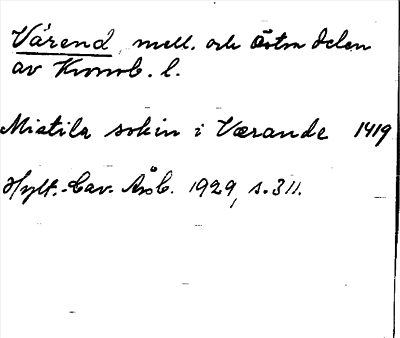 Värend mell. och östra delen
av Kronob. l.
Mistila sokin i Værande 1419
Hylt.-Cav. Åsb. 1929, s. 311.